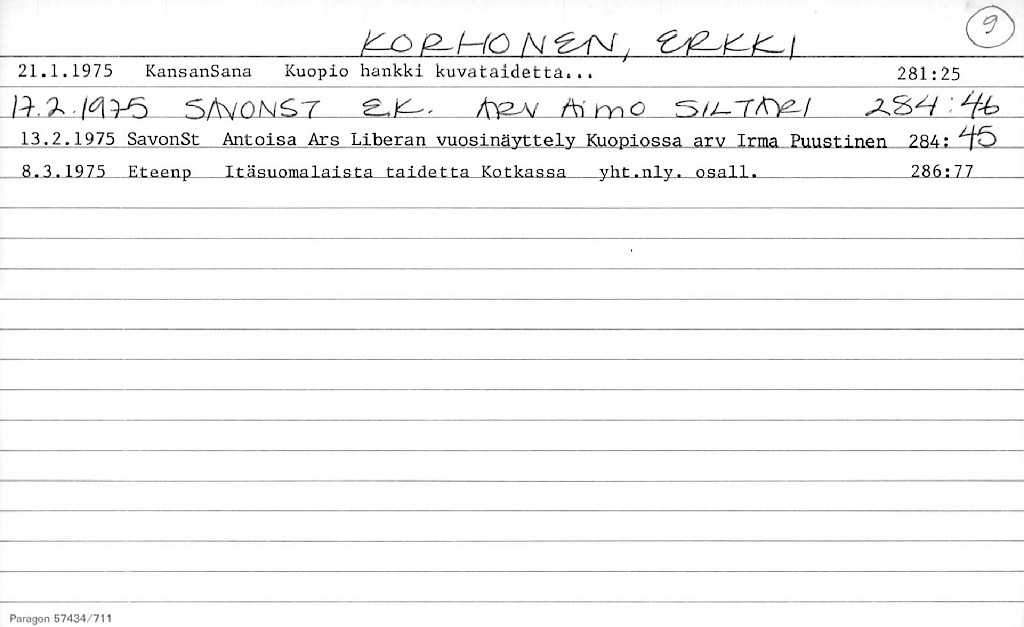 9
KORHONEN, ERKKI
21.1.1975 KansanSana Kuopio hankki kuvataidetta... 281:25
17.2.1975 SAVONST E.K. ARV AIMO SILTARI 284:46
13.2.1975 SavonSt Antoisa Ars Liberan vuosinäyttely Kuopiossa arv Irma Puustinen 284:45
8.3.1975 Eteenp Itäsuomalaista taidetta Kotkassa yht.nly. osall. 286:77
Paragon 57434/711